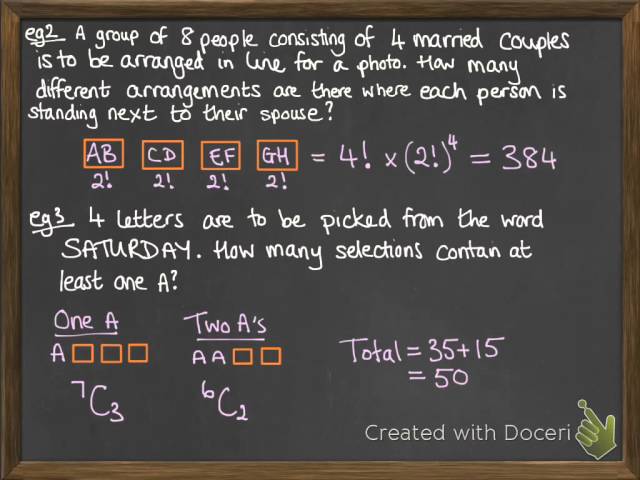 eg2 A group of 8 people consisting of 4 married couples
is to be arranged in line for a photo. How many
different arrangements are there where each person is
standing next to their spouse?
AB CD EF GH = 4! × (2!)⁴ = 384
2! 2! 2! 2!
eg3 4 letters are to be picked from the word
SATURDAY. How many selections contain at
least one A?
One A Two A's
A AA Total = 35+15
= 50
⁷C₃ ⁶C₂
Created with Doceri